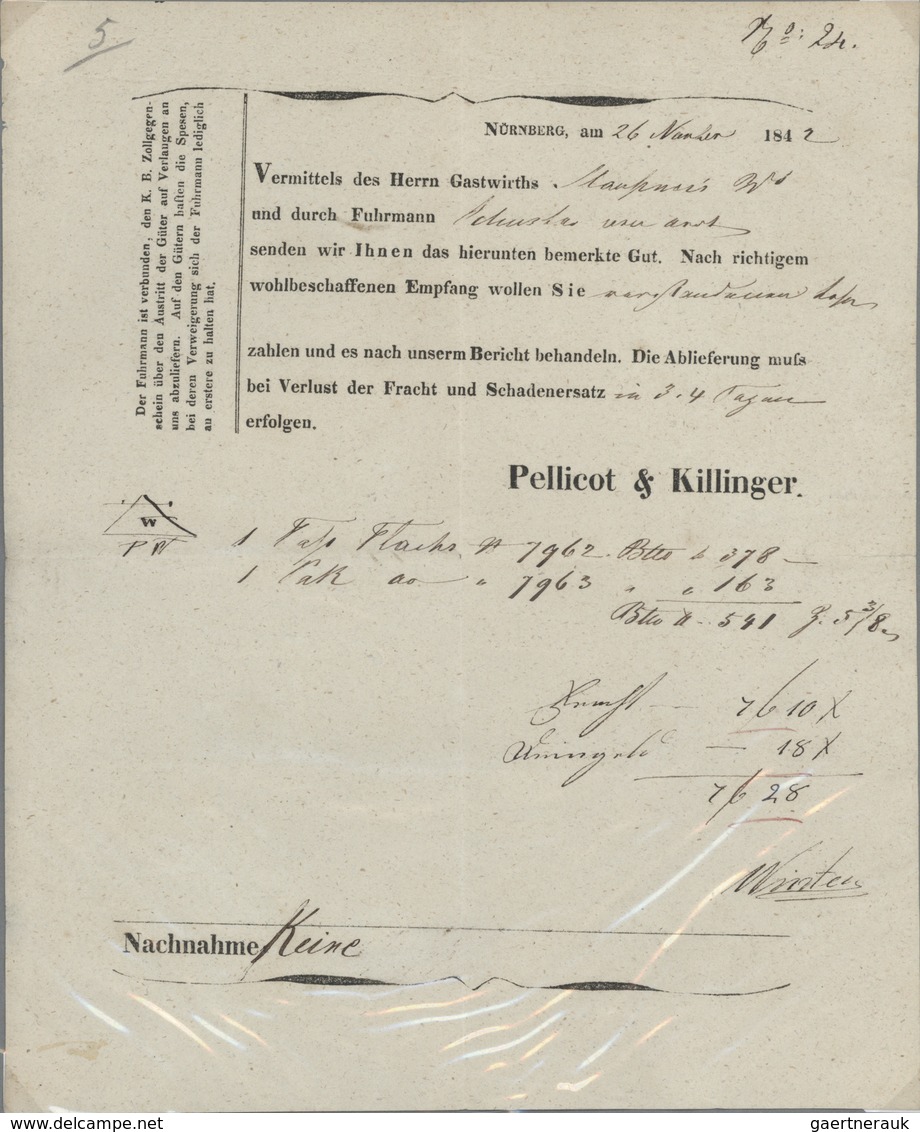 5
No: 24.
Der Fuhrmann ist verbunden, den K. B. Zollgegen-
schein über den Austritt der Güter auf Verlangen an
uns abzuliefern. Auf den Gütern haften die Spesen,
bei deren Verweigerung sich der Fuhrmann lediglich
an erstere zu halten hat.
NÜRNBERG, am 26 1842
Vermittels des Herrn Gastwirths
und durch Fuhrmann
senden wir Ihnen das hierunten bemerkte Gut. Nach richtigem
wohlbeschaffenen Empfang wollen Sie
zahlen und es nach unserm Bericht behandeln. Die Ablieferung muſs
bei Verlust der Fracht und Schadenersatz in 3. 4 Tagen
erfolgen.
Pellicot & Killinger.
W
1 Faß Flachs 7962 Btto 378
1 Pak do 7963 163
Btto 541 5 3/8
Fracht 7 f 10 X
18 X
7 f 28
Nachnahme Keine
gaertnerauk